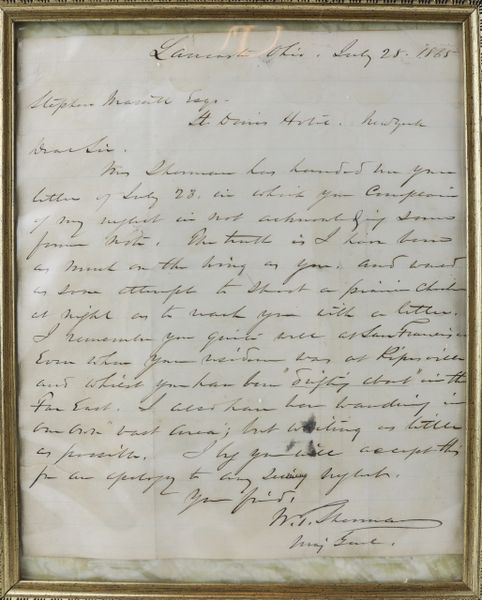 Lancaster Ohio. July 28. 1865
Stephen Massett Esq.
St. Denis Hotel. New York
Dear Sir.
Mrs Sherman has handed me your
letter of July 23. in which you Complain
of my neglect in not acknowledging some
former note. The truth is I have been
as much on the wing as you. and
as soon attempt to Shoot a prairie Chicken
at night as to reach you with a letter.
I remember you quite well at San Francisco
Even when your residence was at Pipesville
and whilst you have been "drifting about" in the
Far East. I also have been wandering in
our own "vast area"; but writing as little
as possible. I beg you will accept this
for an apology to any seeming neglect.
Your friend,
W. T. Sherman
Maj Genl.